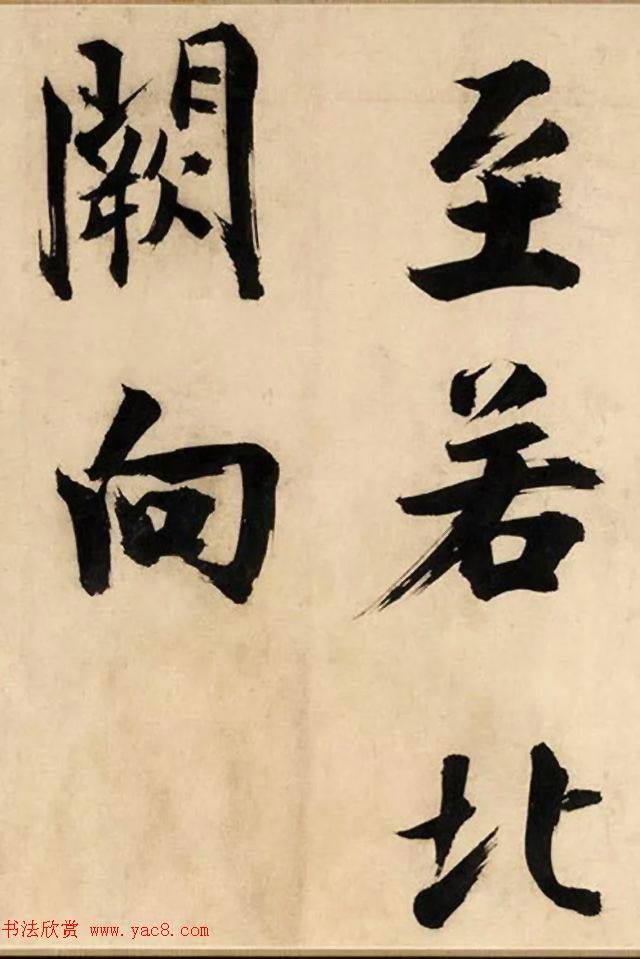 至若北
闕向
书法欣赏 www.yac8.com